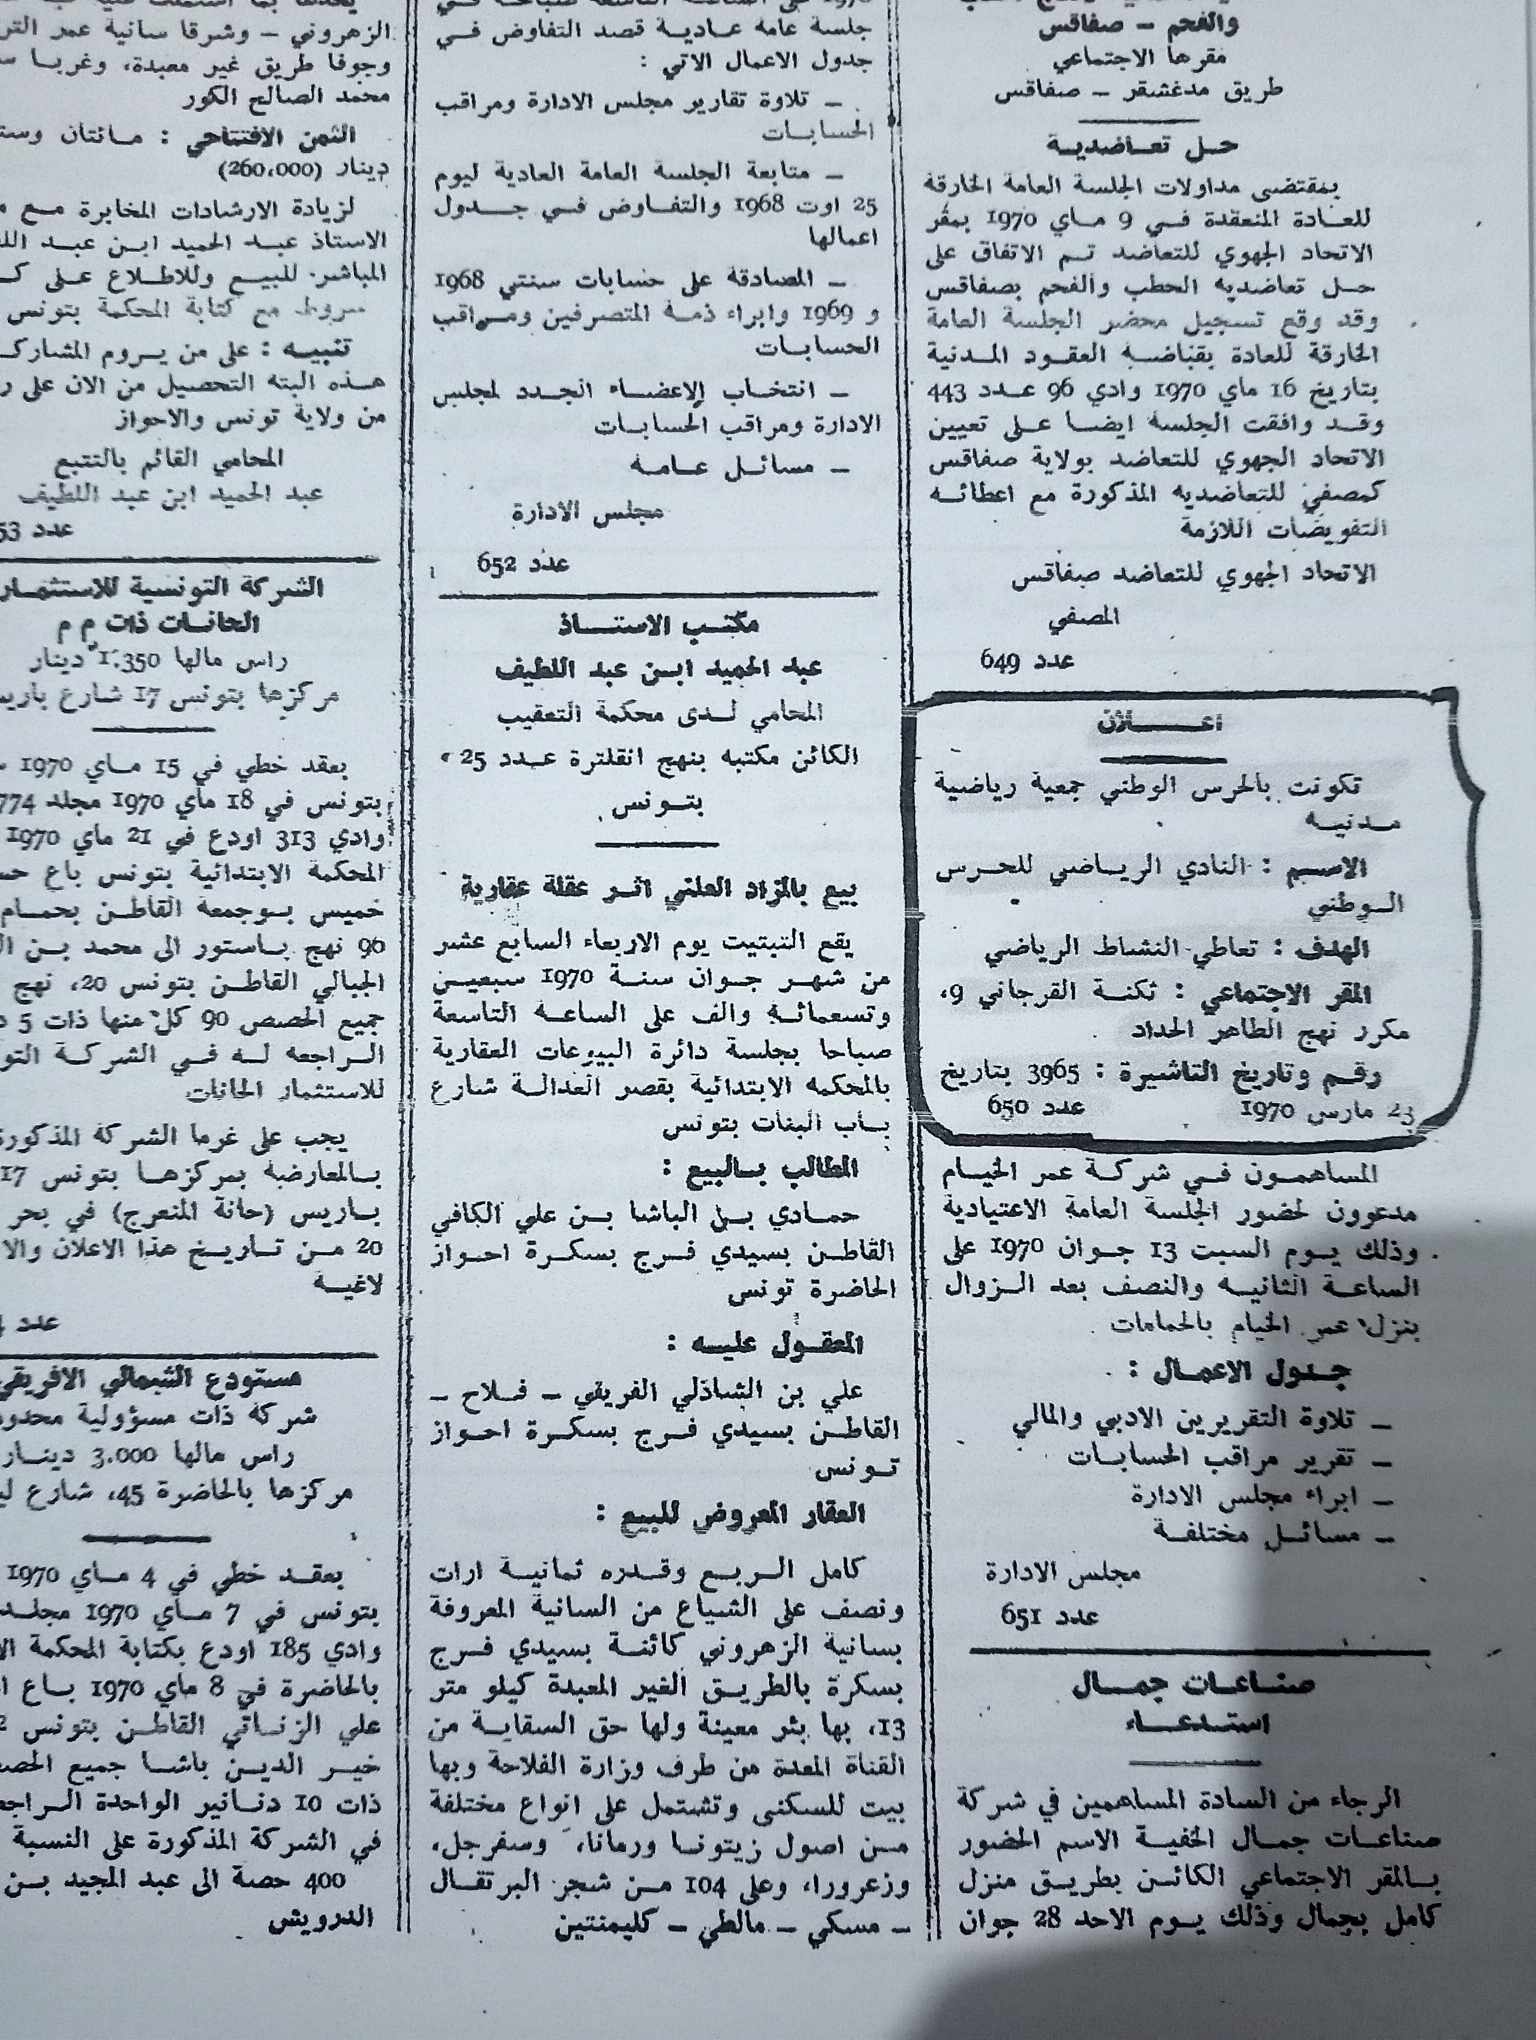 والفحم – صفاقس
مقرها الاجتماعي
طريق مدغشقر – صفاقس
حل تعاضدية
بمقتضى مداولات الجلسة العامة الخارقة
للعادة المنعقدة في 9 ماي 1970 بمقر
الاتحاد الجهوي للتعاضد تم الاتفاق على
حل تعاضديه الحطب والفحم بصفاقس
وقد وقع تسجيل محضر الجلسة العامة
الخارقة للعادة بقباضه العقود المدنية
بتاريخ 16 ماي 1970 وادي 96 عدد 443
وقد وافقت الجلسة ايضا على تعيين
الاتحاد الجهوي للتعاضد بولاية صفاقس
كمصفي للتعاضديه المذكورة مع اعطائه
التفويضات اللازمة
الاتحاد الجهوي للتعاضد صفاقس
المصفي
عدد 649
اعلان
تكونت بالحرس الوطني جمعية رياضية
مدنيه
الاسم : النادي الرياضي للحرس
الوطني
الهدف : تعاطي النشاط الرياضي
المقر الاجتماعي : ثكنة القرجاني 9،
مكرر نهج الطاهر الحداد
رقم وتاريخ التاشيرة : 3965 بتاريخ
23 مارس 1970 عدد 650
المساهمون في شركة عمر الخيام
مدعوون لحضور الجلسة العامة الاعتيادية
وذلك يوم السبت 13 جوان 1970 على
الساعة الثانيه والنصف بعد الزوال
بنزل عمر الخيام بالحمامات
جدول الاعمال :
– تلاوة التقريرين الادبي والمالي
– تقرير مراقب الحسابات
– ابراء مجلس الادارة
– مسائل مختلفة
مجلس الادارة
عدد 651
صناعات جمال
استدعاء
الرجاء من السادة المساهمين في شركة
صناعات جمال الخفية الاسم الحضور
بالمقر الاجتماعي الكائن بطريق منزل
كامل بجمال وذلك يوم الاحد 28 جوان
جلسة عامه عادية قصد التفاوض في
جدول الاعمال الاتي :
– تلاوة تقارير مجلس الادارة ومراقب
الحسابات
– متابعة الجلسة العامة العادية ليوم
25 اوت 1968 والتفاوض في جدول
اعمالها
– المصادقة على حسابات سنتي 1968
و 1969 وابراء ذمة المتصرفين ومراقب
الحسابات
– انتخاب الاعضاء الجدد لمجلس
الادارة ومراقب الحسابات
– مسائل عامة
مجلس الادارة
عدد 652
مكتب الاستاذ
عبد الحميد ابن عبد اللطيف
المحامي لدى محكمة التعقيب
الكائن مكتبه بنهج انقلترة عدد 25
بتونس
بيع بالمزاد العلني اثر عقلة عقارية
يقع التبتيت يوم الاربعاء السابع عشر
من شهر جوان سنة 1970 سبعين
وتسعمائة والف على الساعة التاسعة
صباحا بجلسة دائرة البيوعات العقارية
بالمحكمه الابتدائية بقصر العدالة شارع
باب البنات بتونس
الطالب بالبيع :
حمادي بن الباشا بن علي الكافي
القاطن بسيدي فرج بسكرة احواز
الحاضرة تونس
المعقول عليه :
علي بن الشاذلي الفريقي – فلاح –
القاطن بسيدي فرج بسكرة احواز
تونس
العقار المعروض للبيع :
كامل الربع وقدره ثمانية ارات
ونصف على الشياع من السانية المعروفة
بسانية الزهروني كائنة بسيدي فرج
بسكرة بالطريق الغير المعبدة كيلو متر
13، بها بئر معينة ولها حق السقاية من
القناة المعدة من طرف وزارة الفلاحة وبها
بيت للسكنى وتشتمل على انواع مختلفة
من اصول زيتونا ورمانا، وسفرجل،
وزعرورا، وعلى 104 من شجر البرتقال
– مسكي – مالطي – كليمنتين
الزهروني – وشرقا سانية عمر
وجوفا طريق غير معبدة، وغربا
محمد الصالح الكور
الثمن الافتتاحي : مائتان
دينار (260،000)
لزيادة الارشادات المخابرة مع
الاستاذ عبد الحميد ابن عبد
المباشر للبيع وللاطلاع على
مع كتابة المحكمة بتونس
تنبيه : على من يروم
هذه البته التحصيل من الان على
من ولاية تونس والاحواز
المحامي القائم بالتتبع
عبد الحميد ابن عبد اللطيف
عدد
الشركة التونسية للاستثمار
الحانات ذات م م
راس مالها 1.350 دينار
مركزها بتونس 17 شارع
بعقد خطي في 15 ماي 1970
بتونس في 18 ماي 1970 مجلد
وادي 313 اودع في 21 ماي 1970
المحكمة الابتدائية بتونس باع
خميس بوجمعة القاطن بحمام
96 نهج باستور الى محمد بن
الجبالي القاطن بتونس 20، نهج
جميع الحصص 90 كل منها ذات 5
الراجعه له في الشركة
للاستثمار الحانات
يجب على غرما الشركة المذكورة
بالمعارضة بمركزها بتونس 17
باريس (حانة المنعرج) في بحر
20 من تاريخ هذا الاعلان
لاغية
عدد
مستودع الشمالي الافريقي
شركة ذات مسؤولية
راس مالها 3.000 دينار
مركزها بالحاضرة 45، شارع
بعقد خطي في 4 ماي 1970
بتونس في 7 ماي 1970
وادي 185 اودع بكتابة المحكمة
بالحاضرة في 8 ماي 1970 باع
علي الزناتي القاطن بتونس
خير الدين باشا جميع
ذات 10 دنانير الواحدة
في الشركة المذكورة على النسبة
400 حصة الى عبد المجيد بن
الدرويش